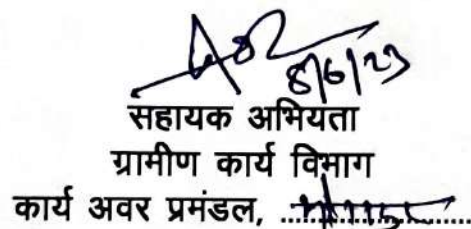 8/6/23
सहायक अभियता
ग्रामीण कार्य विभाग
कार्य अवर प्रमंडल, ..................